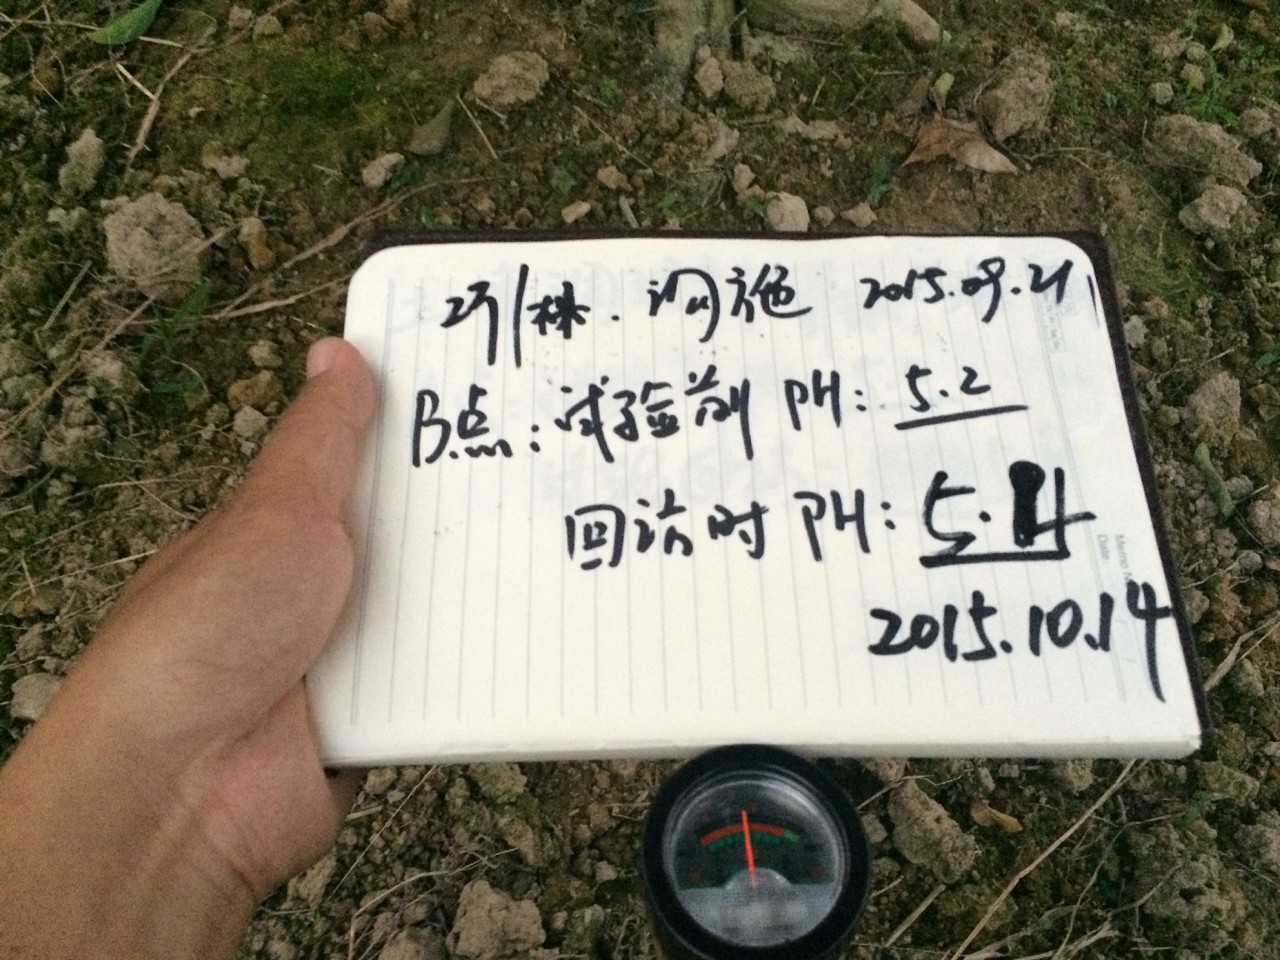 2斤/株. 沟施 2015.09.21
B点: 试验前 PH: 5.2
回访时 PH: 5.4
2015.10.14
Memo No
Date